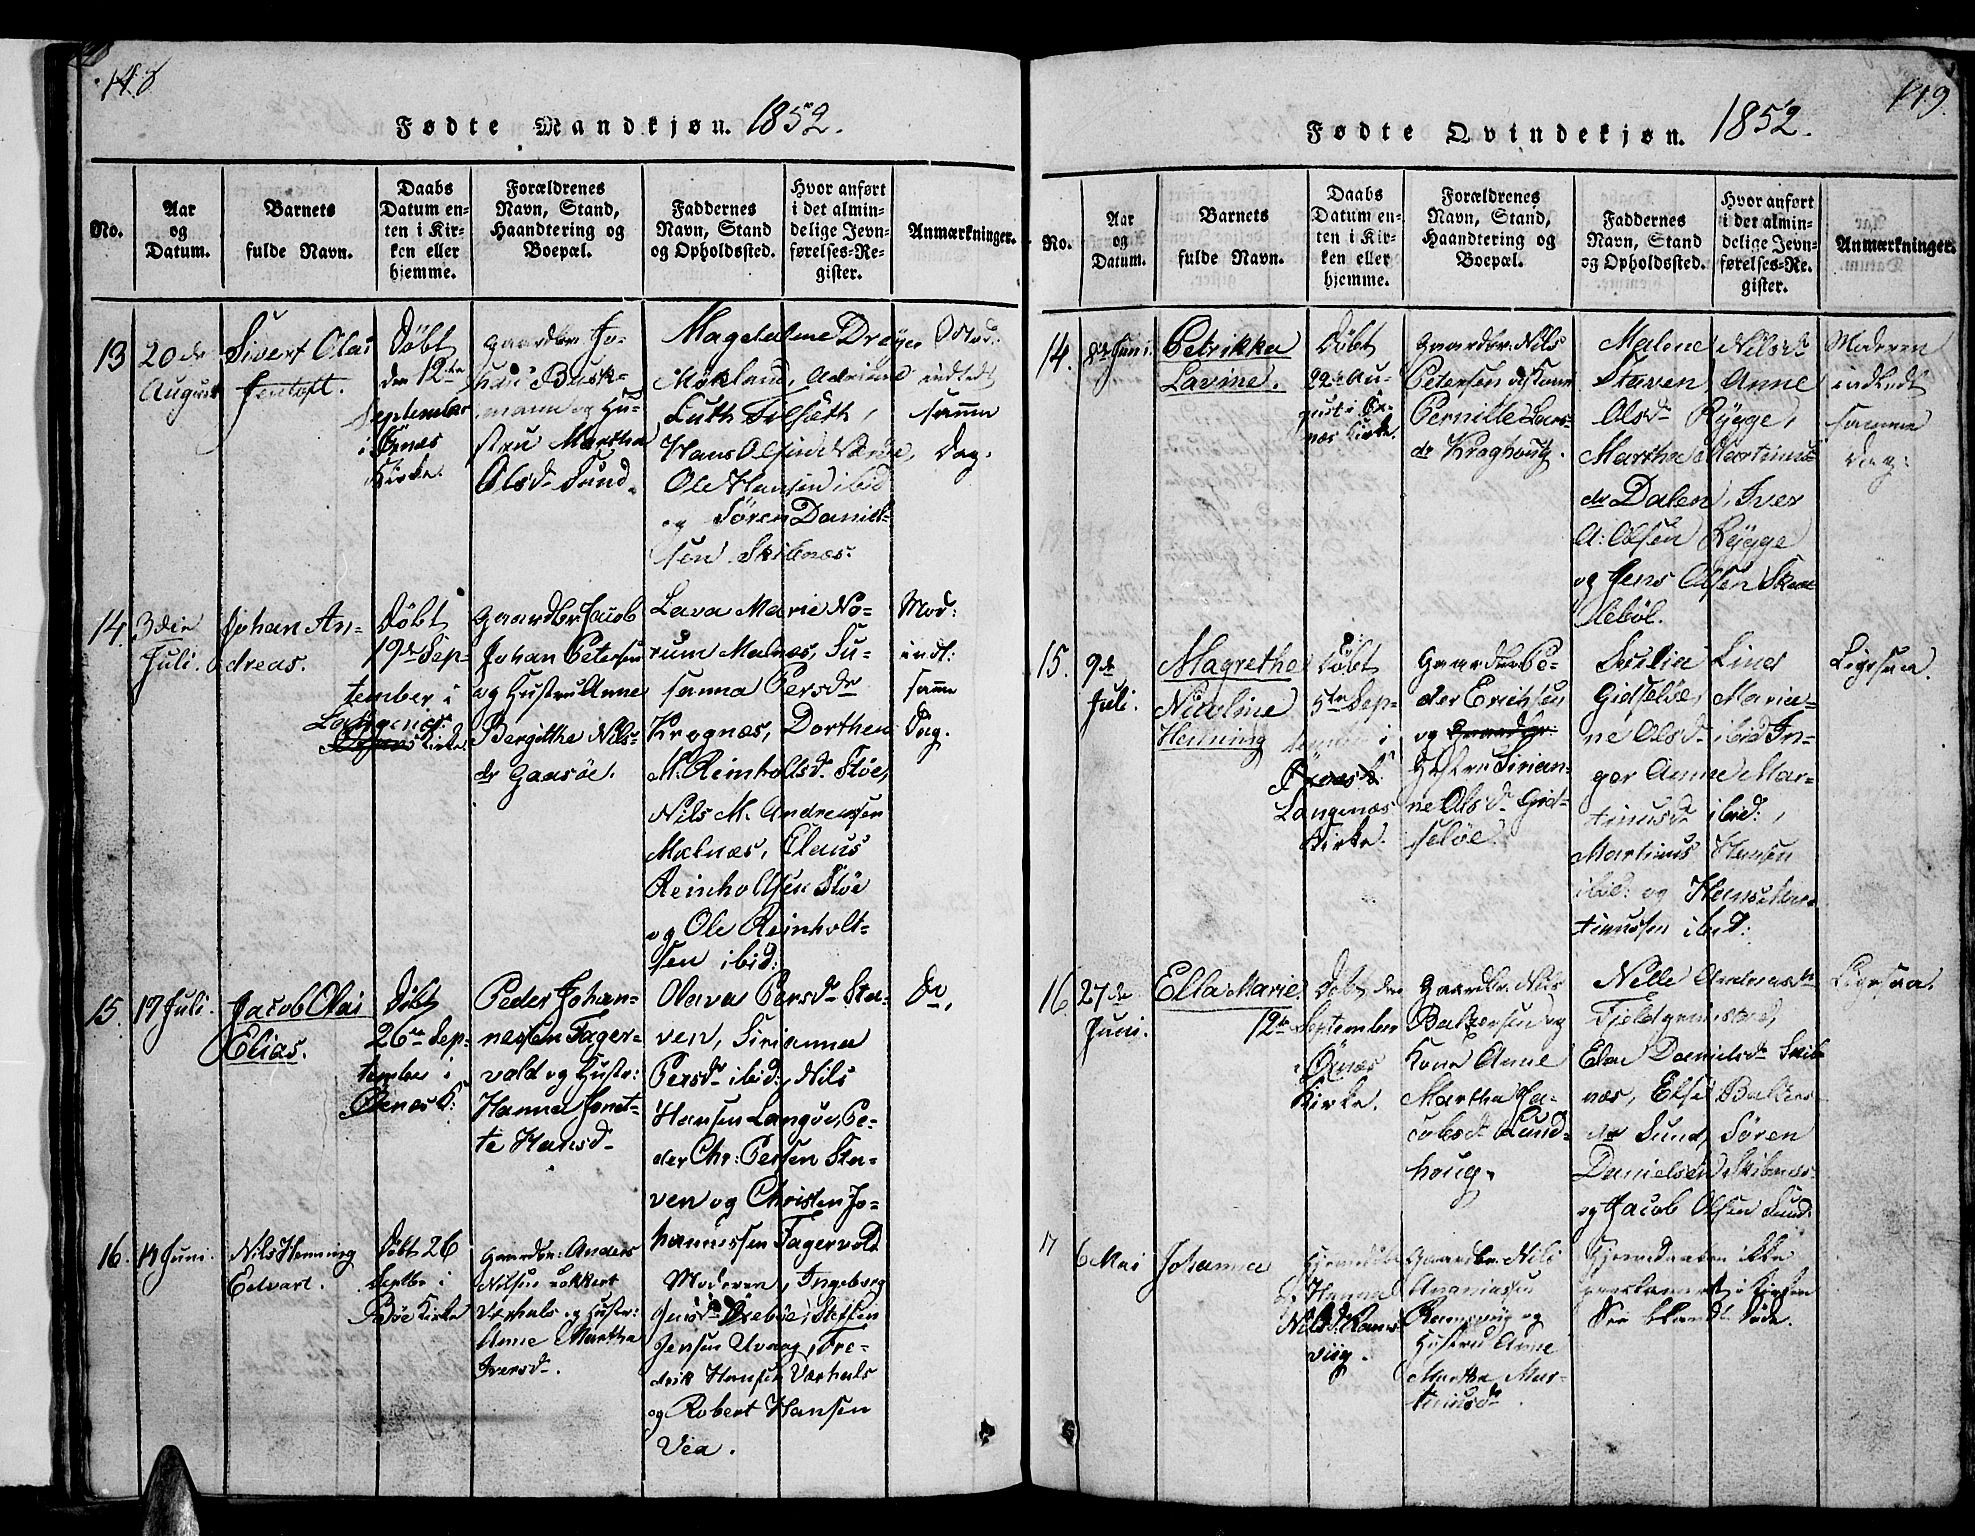 148
Fødte Mandkjøn. 1852.
No.
Aar
og
Datum.
Barnets
fulde Navn.
Daabs
Datum en-
ten i Kir-
ken eller
hjemme.
Forældrenes
Navn, Stand,
Haandtering og
Boepæl.
Faddernes
Navn, Stand
og Opholdssted.
Hvor anført
i det almin-
delige Jevn-
førelses-Re-
gister.
Anmærkninger.
13
20de
August
Sivert Olai
Jentoft.
Døbt
den 12te
September
i Öxnes
Kirke.
Gaardbr. Jo-
Busk-
mann og Hu-
stru Martha
Olsdr Sund.
Magdalene Dreyer
Møkland,
Hans Olsen
Ole Hansen ibid
og Søren Daniel-
sen Skibnæs.
Mod.
indledt
samme
Dag.
14.
3die
Juli.
Johan An-
dreas.
Døbt
19de Sep-
tember i
Langenes
Kirke
Gaardbr Jacob
Johan Petersen
og Hustru Anne
Bergitthe Nils-
dr Gaasöe.
Lava Marie No-
rum Malnæs, Su-
sanna Persdr
Krognæs, Dorthea
M. Reinholtsdr Støe,
Nils M. Andreassen
Malnæs, Claus
Reinholtsen Støe
og Ole Reinholt-
sen ibid:
Mod:
indl:
samme
Dag.
15.
17 Juli.
Jacob Olai
Elias.
Døbt
26de Sep-
tember i
Öxnæs K:
Peder Johan-
nessen Fager-
vold og Hustr:
Hanna Jenet-
te Hansdr
Olava Persdr Sta-
ven, Sirianna
Persdr ibid:, Nils
Hansen Langøe, Pe-
der Chr: Persen Sta-
ven og Christen Jo-
hannessen Fagervold
do,
16.
14 Juni.
Nils Henning
Edvart.
Døbt 26
Septbr i
Bøe Kirke
Gaardbr: Anders
Nilsen Lokkert
Værhals og Hustr:
Anne Martha
Iversdr.
Moderen, Ingeborg
Jensdr Steffen
Jensen Uvaag, Fre-
drik Hansen Værhals
og Robert Hansen
Vea.
149.
Fødte Qvindekjøn. 1852.
No.
Aar
og
Datum.
Barnets
fulde Navn.
Daabs
Datum en-
ten i Kir-
ken eller
hjemme.
Forældrenes
Navn, Stand,
Haandtering og
Boepæl.
Faddernes
Navn, Stand
og Opholdssted.
Hvor anført
i det almin-
delige Jevn-
førelses-Re-
gister.
Anmærkninger.
14.
8de Juni
Petrikka
Lavine.
Døbt
22de Au-
gust i Öx-
næs Kirke.
Gaardbr. Nils
Petersen og Kone
Pernille Lars-
dr Kraghoug.
Malene Nilsdr
Staven Anne
Olsdr Rygge,
Martha Martinus-
dr Dalen, Iver
A: Olsen Rygge
og Jens Olsen Skaa-
lebøl.
Moderen
indledt
samme
Dag:
15.
9de
Juli.
Magrethe
Nicoline
Henning
Døbt
5te Sep-
tember i
Öxnæs K:
Langenæs
Kirke.
Gaardbr Pe-
der Erichsen
og Gaardbr.
Hustru Sirian-
ne Olsdr Gid-
seløe.
Sesilia Lind
Gidseløe, Maria-
ne Olsdr ibid In-
ger Anne Mar-
tinusdr ibid:,
Martinus Hansen
ibid: og Hans Mar-
tinussen ibid:
Ligesaa.
16.
27de
Juni.
Ella Marie.
Døbt den
12te September
i Öxnæs
Kirke.
Gaardbr. Nils
Baltersen og
Kone Anne
Martha Ja-
cobsdr Sund-
houg.
Nelle Andreasdr
Elen Danielsdr Skib-
næs, Else Balters-
dr Sund, Søren
Danielsen Skibnæs
og Jacob Olsen Sund.
Ligesaa.
17
6 Mai
Johanna
Hjemmedøbt
af Hanna
Nilsdr Rams-
viig.
Gaardbr Nils
Ananiassen
Ramsviig og
Hustru Anne
Martha Mar-
tinusdr.
Hjemmedaaben ikke
i Kirken
See blandt Døde.